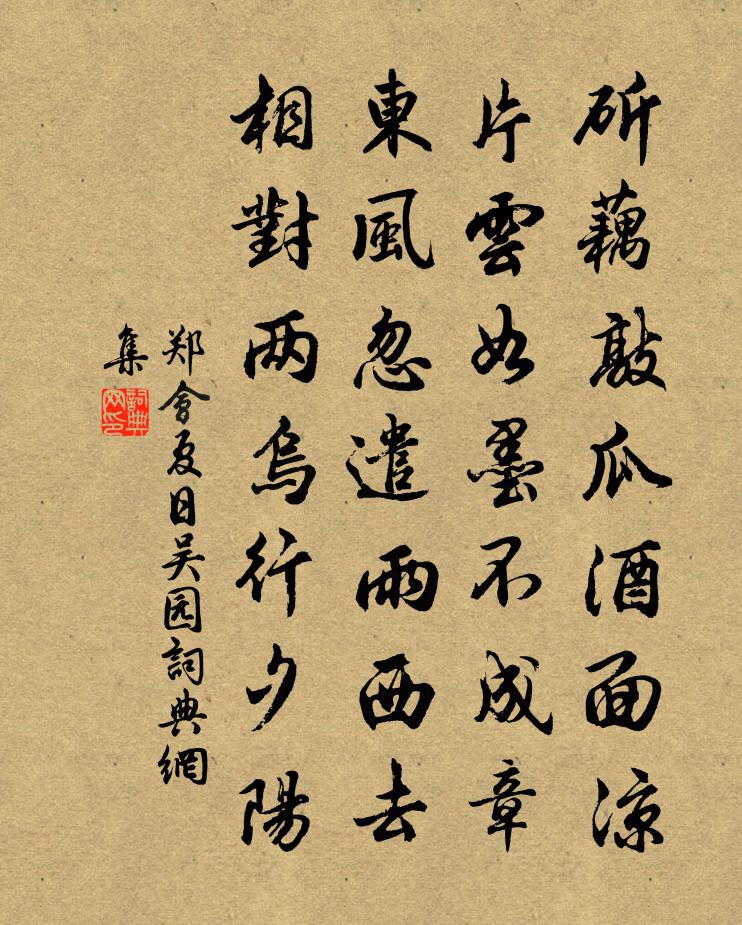 斫藕敲瓜酒面凉
片雲如墨不成章
東風忽遣雨西去
相對两烏行夕陽
郑會夏日吴园詞典網
集
詞典網印